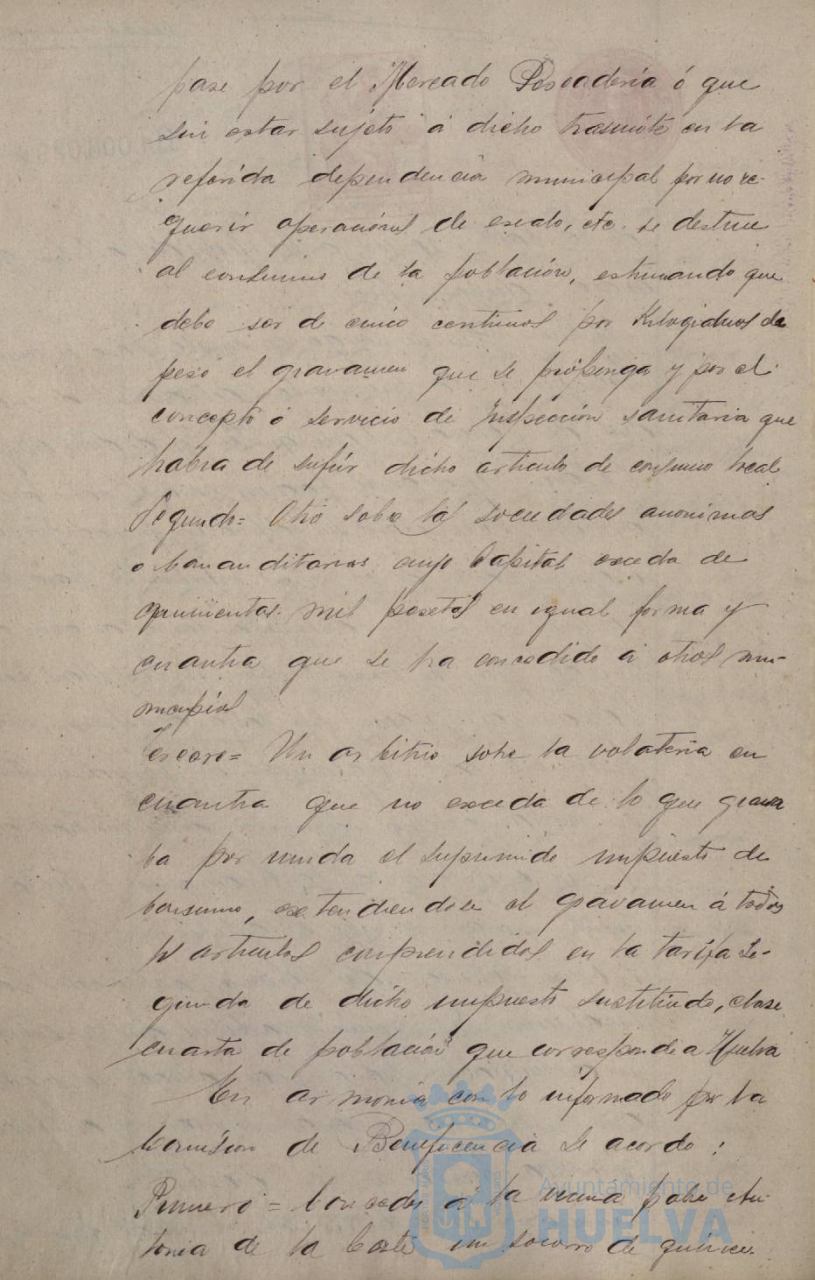 pase por el Mercado Pescaderia ó que
sin estar sujeto á dicho trasmite en la
referida dependencia municipal por no re-
querir operaciones de escalo, etc. se destine
al consumo de la población, estimando que
debe ser de cinco centimos por Kilogramos de
peso el gravamen que se proponga y por el
concepto ó servicio de inspección sanitaria que
habra de sufrir dicho articulo de consumo local
Segundo= Otro sobre las sociedades anonimas
o comanditarias cuyo Capital exceda de
quinientas mil pesetas en igual forma y
cuantia que se ha concedido á otros mu-
nicipios
Tercero= Un arbitrio sobre la volateria en
cuantia que no exceda de lo que grava
ba por unida el suprimido impuesto de
Consumo, extendiendose el gravamen á todos
los articulos comprendidos en la tarifa se-
gunda de dicho impuesto sustituido, clase
cuarta de población que corresponde a Huelva
En armonia con lo informado por la
Comision de Beneficencia se acordo:
Primero = Conceder á la vecina pobre An-
tonia de la Corte un socorro de quince
Ayuntamiento de
HUELVA